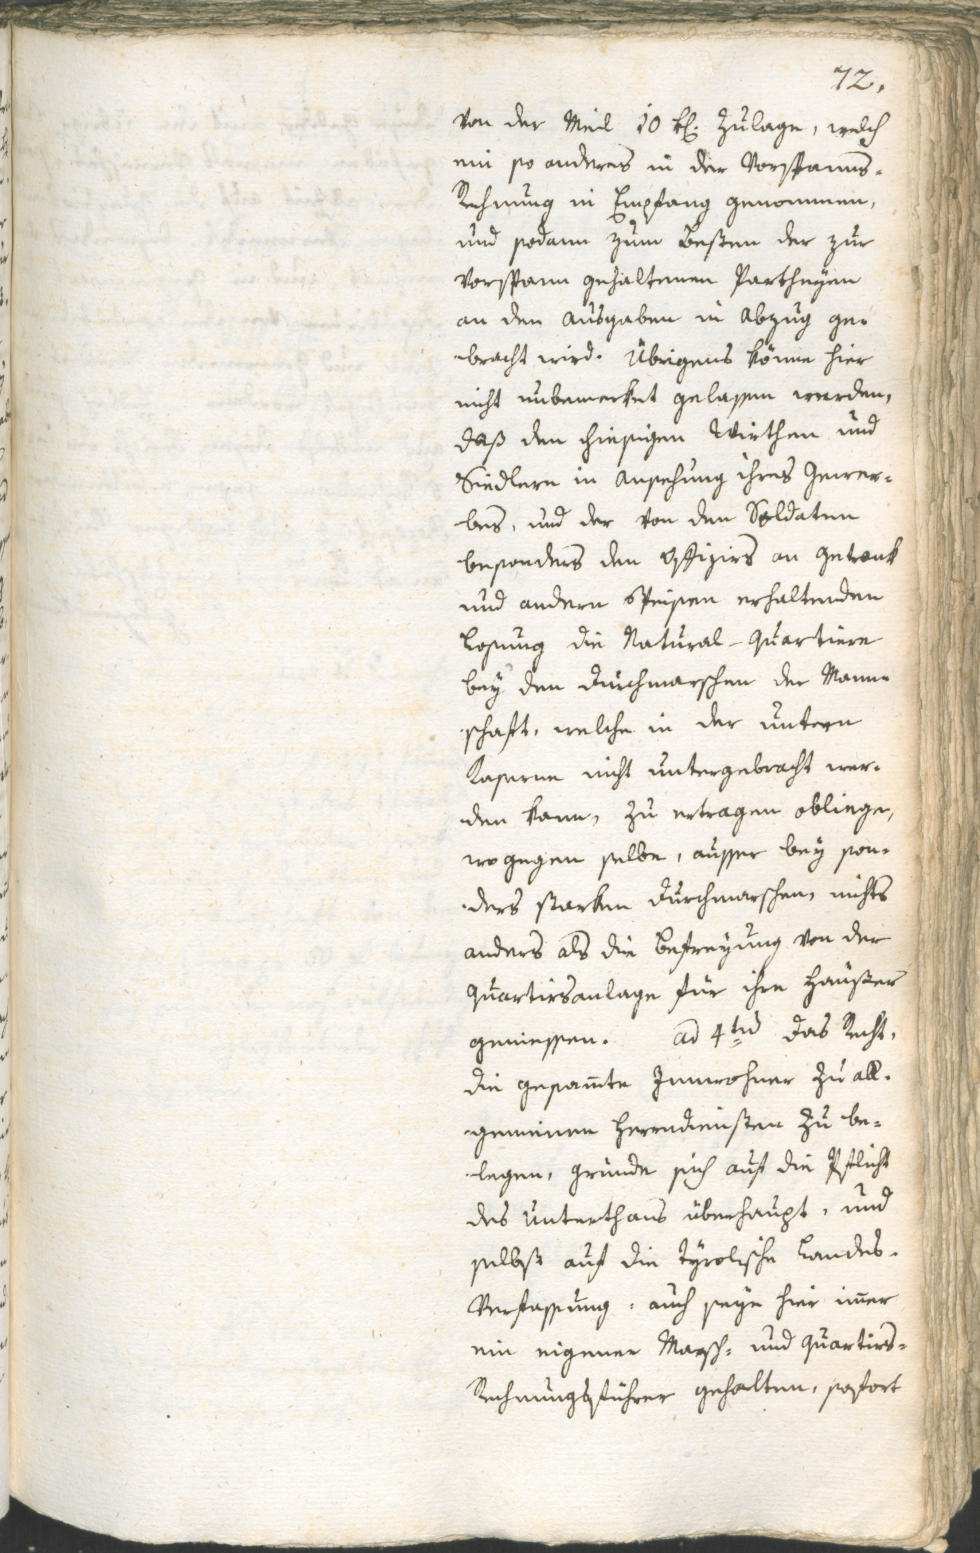 72.
von der Meil 10 kr: Zulage, welch
ein so anderes in der Vorspanns-
Rechnung in Empfang genommen,
und sodann zum Besten der zur
Vorspann gehaltenen Partheyen
an den Ausgaben in Abzug ge-
bracht wird. Übrigens könne hier
nicht unbemerket gelassen werden,
daß den hiesigen Wirthen und
Siedlern in Ansehung ihres Gewer-
bes, und der von den Soldaten
besonders den Offizirs an Getrank
und andern Speisen erhaltenden
Losung die Natural-Quartiere
bey den Durchmarschen der Mann-
schaft, welche in der untern
Kaserne nicht untergebracht wer-
den kann, zu ertragen obliege,
wogegen selbe, ausser bey son-
ders starken Durchmarschen, nichts
anders als die Befreyung von der
Quartirsanlage für ihre Häußer
geniessen. ad 4tũ das Recht,
die gesam̄te Innwohner zu all-
gemeinen Herrndiensten zu be-
legen, gründe sich auf die Pflicht
des Unterthans überhaupt, und
selbst auf die tyrolische Landes-
Verfassung, auch seye hier im̄er
ein eigener Marsch- und Quartirs-
Rechnungsführer gehalten, sofort